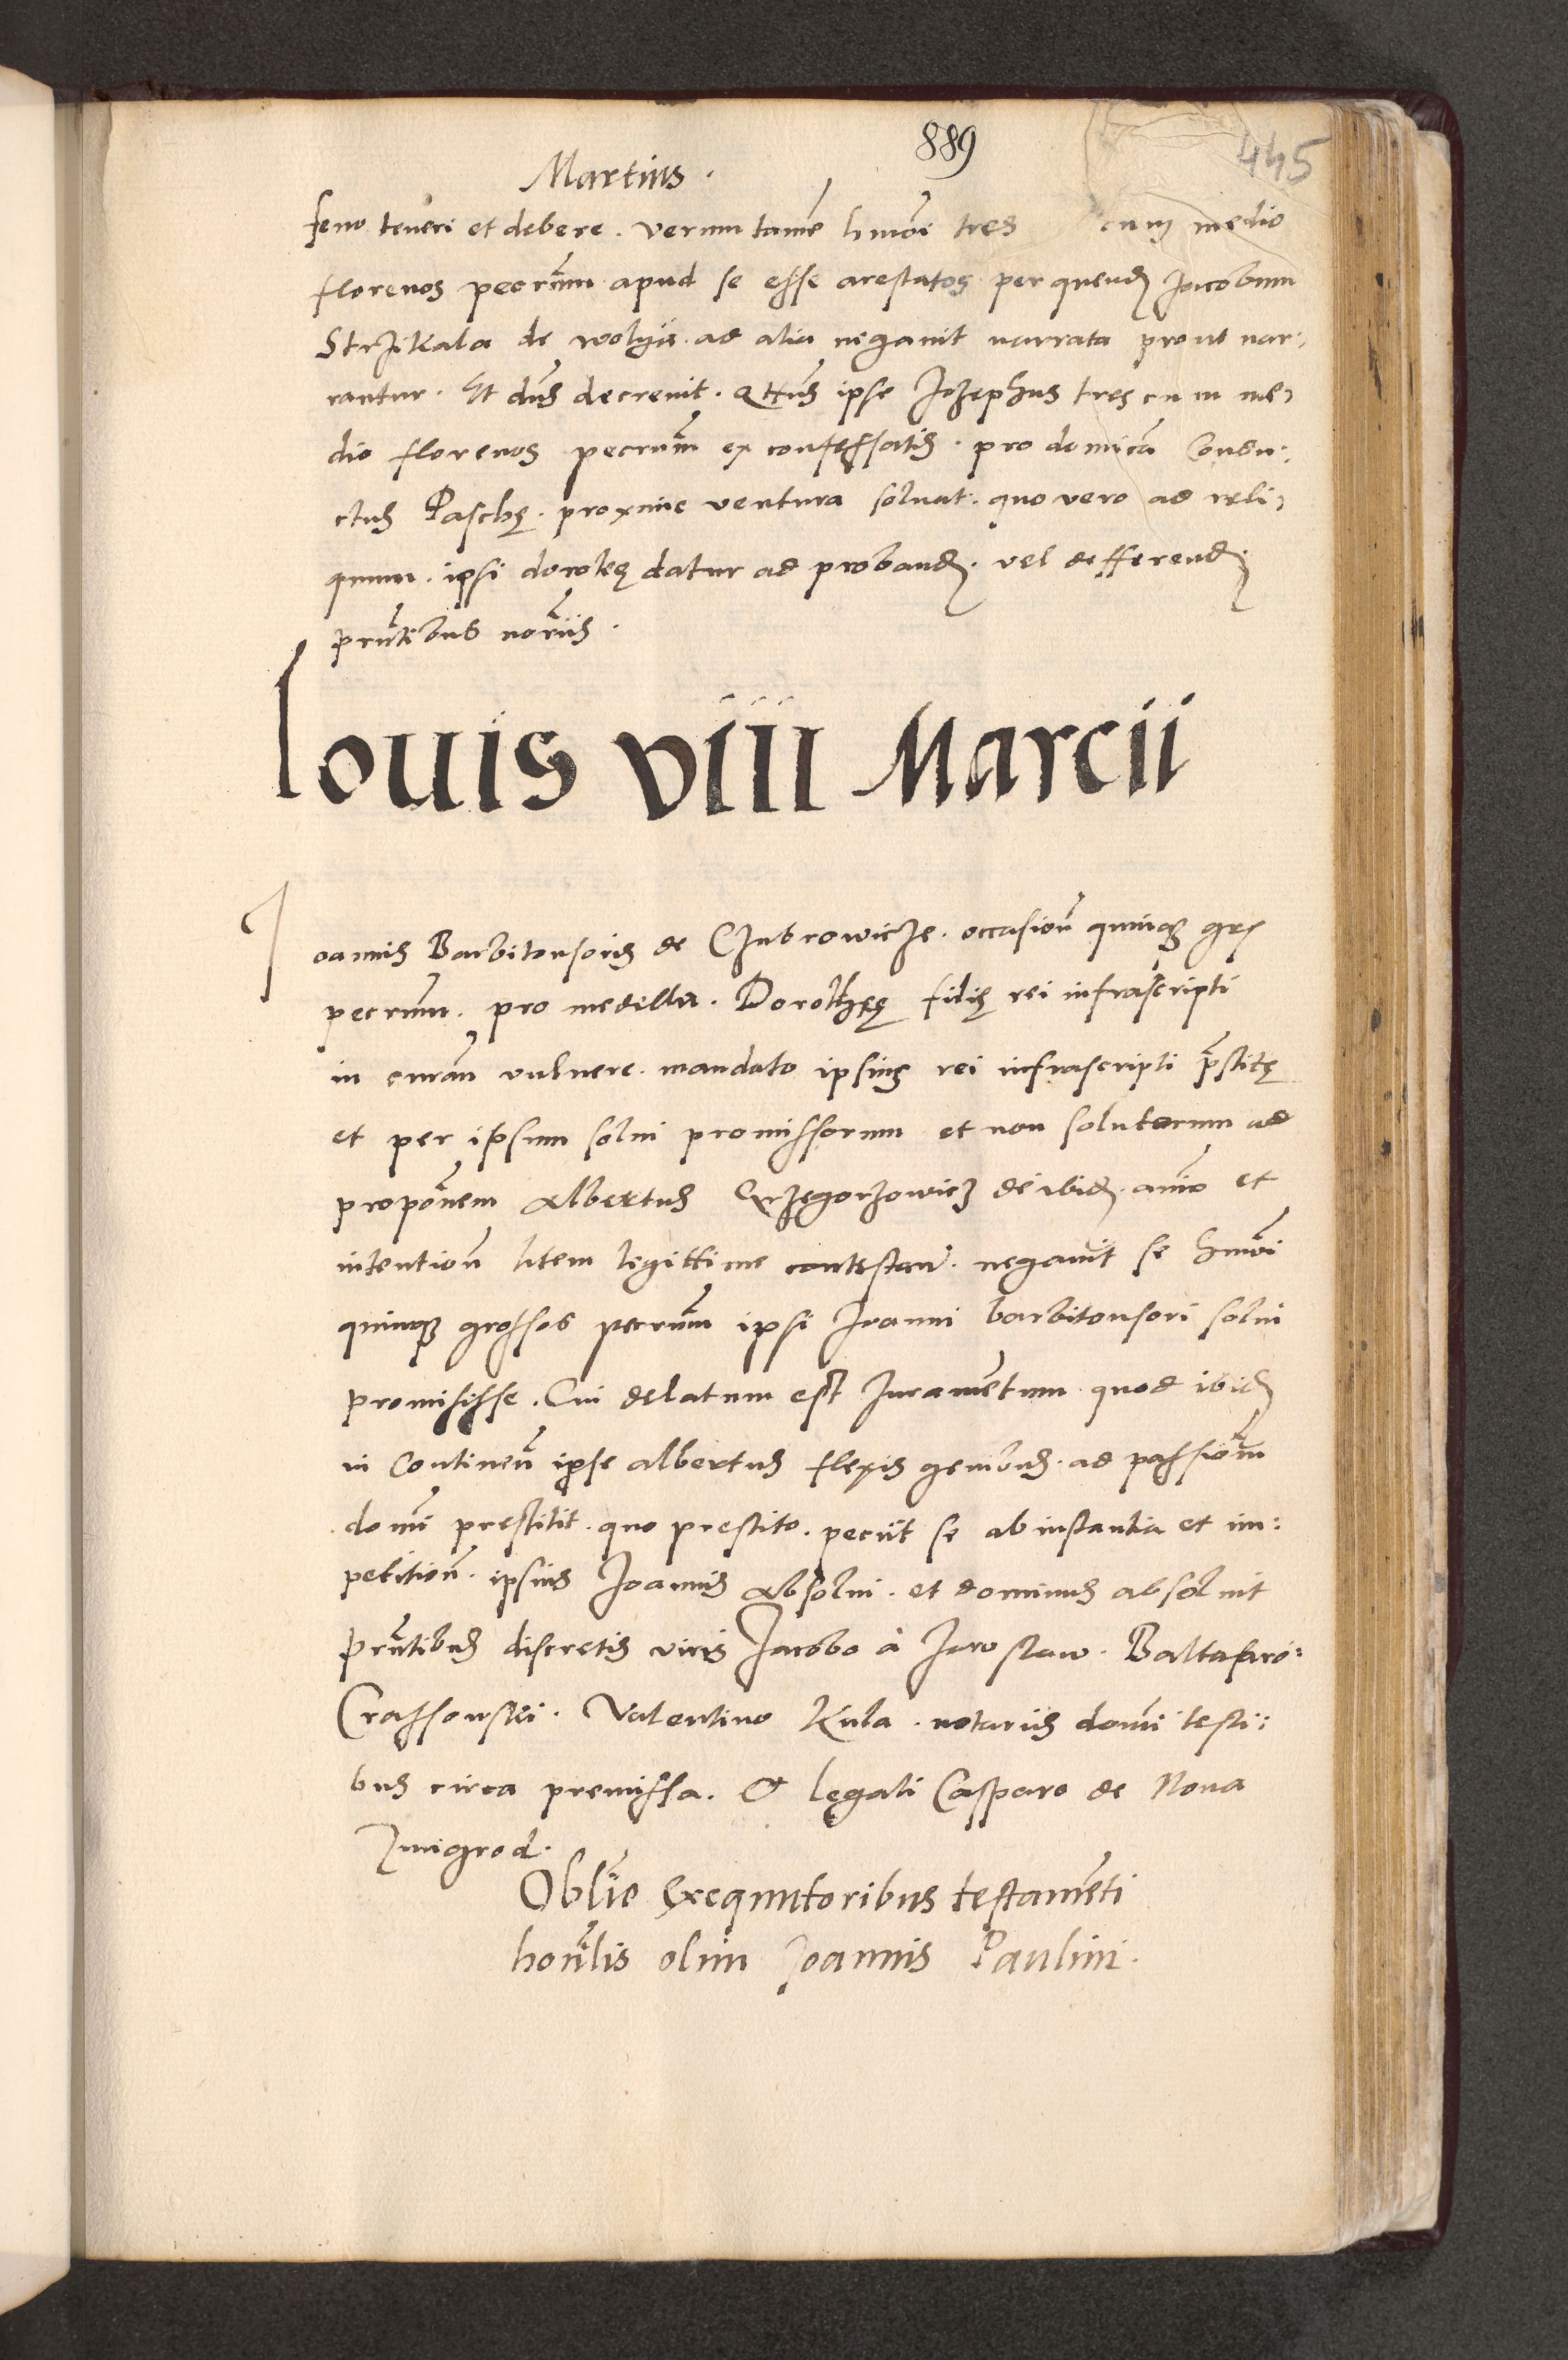 889
445
Martius.
feno teneri et debere. verum tamē hmōi tres cum medio
florenos pecunm̄ apud se esse arestatos per quendȝ Jacobum
Strzikala de wolya. ad alia negauit narrata prout nar:
rantur. Et dn̄s decreuit. Qtt̄us ipse Jozephus tres cum me:
dio florenos pecunm̄ ex confessatis. pro domica Condu:
ctus Paschę. proxime ventura soluat. quo vero ad reli:
quum. ipsi doroteę datur ad probandȝ. vel defferendȝ
prn̄tibus nor̄iis.
Iouis viii Marcii
Joannis Barbitonsoris de Czubrowicze. occasion̄ quinqȝ grs
pecunm̄. pro medella. Dorotheę filię rei infrascripti
in curan̄ vulnere. mandato ipsius rei infrascripti pr̄stitę
et per ipsum solui promissorum et non solutorum ad
propōnem Albertus Grzegorzowicz de ibidȝ. an̄io et
intention̄ litem legittime contestan̄. negauit se hmōi
quinqȝ grossos pecunm̄ ipsi Joanni barbitonsori solui
promisisse. Cui delatum est Juramentum quod ibidȝ
in Continen̄ ipse albertus flexis genibus. ad passiōnm
domī prestitit. quo prestito. peciit se ab instantia et im:
petition̄. ipsius Joannis Absolui. et dominus absoluit
prn̄tibus discretis viris Jacobo à Jaroslaw. Baltasaro:
Crassowski. Valentino Kula. notariis domī testi:
bus circa premissa. Et legati Casparo de Noua
Zmigrod.
Obl̄ie Exequutoribus testamenti
hon̄lis olim Joannis Paulini.